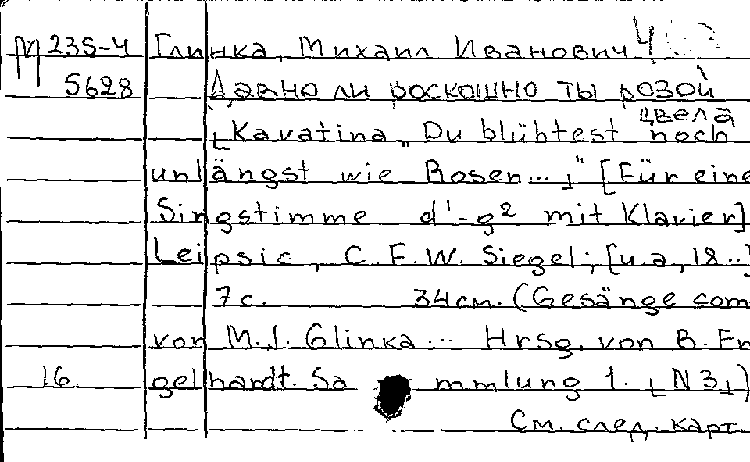 М 235-4 Глинка, Михаил Иванович 4
5628 Давно ли роскошно ты розой
цвела
[Kavatina „Du blühtest noch
unlängst wie Rosen...]" [Für eine
Singstimme d'-g² mit Klavier]
Leipsic, C. F. W. Siegel; [u.a, 18..]
7 с. 34 см. (Gesänge com
von M. I. Glinka... Hrsg. von B. En
16 gelhardt. Sammlung 1. [N 3])
См. след. карт.